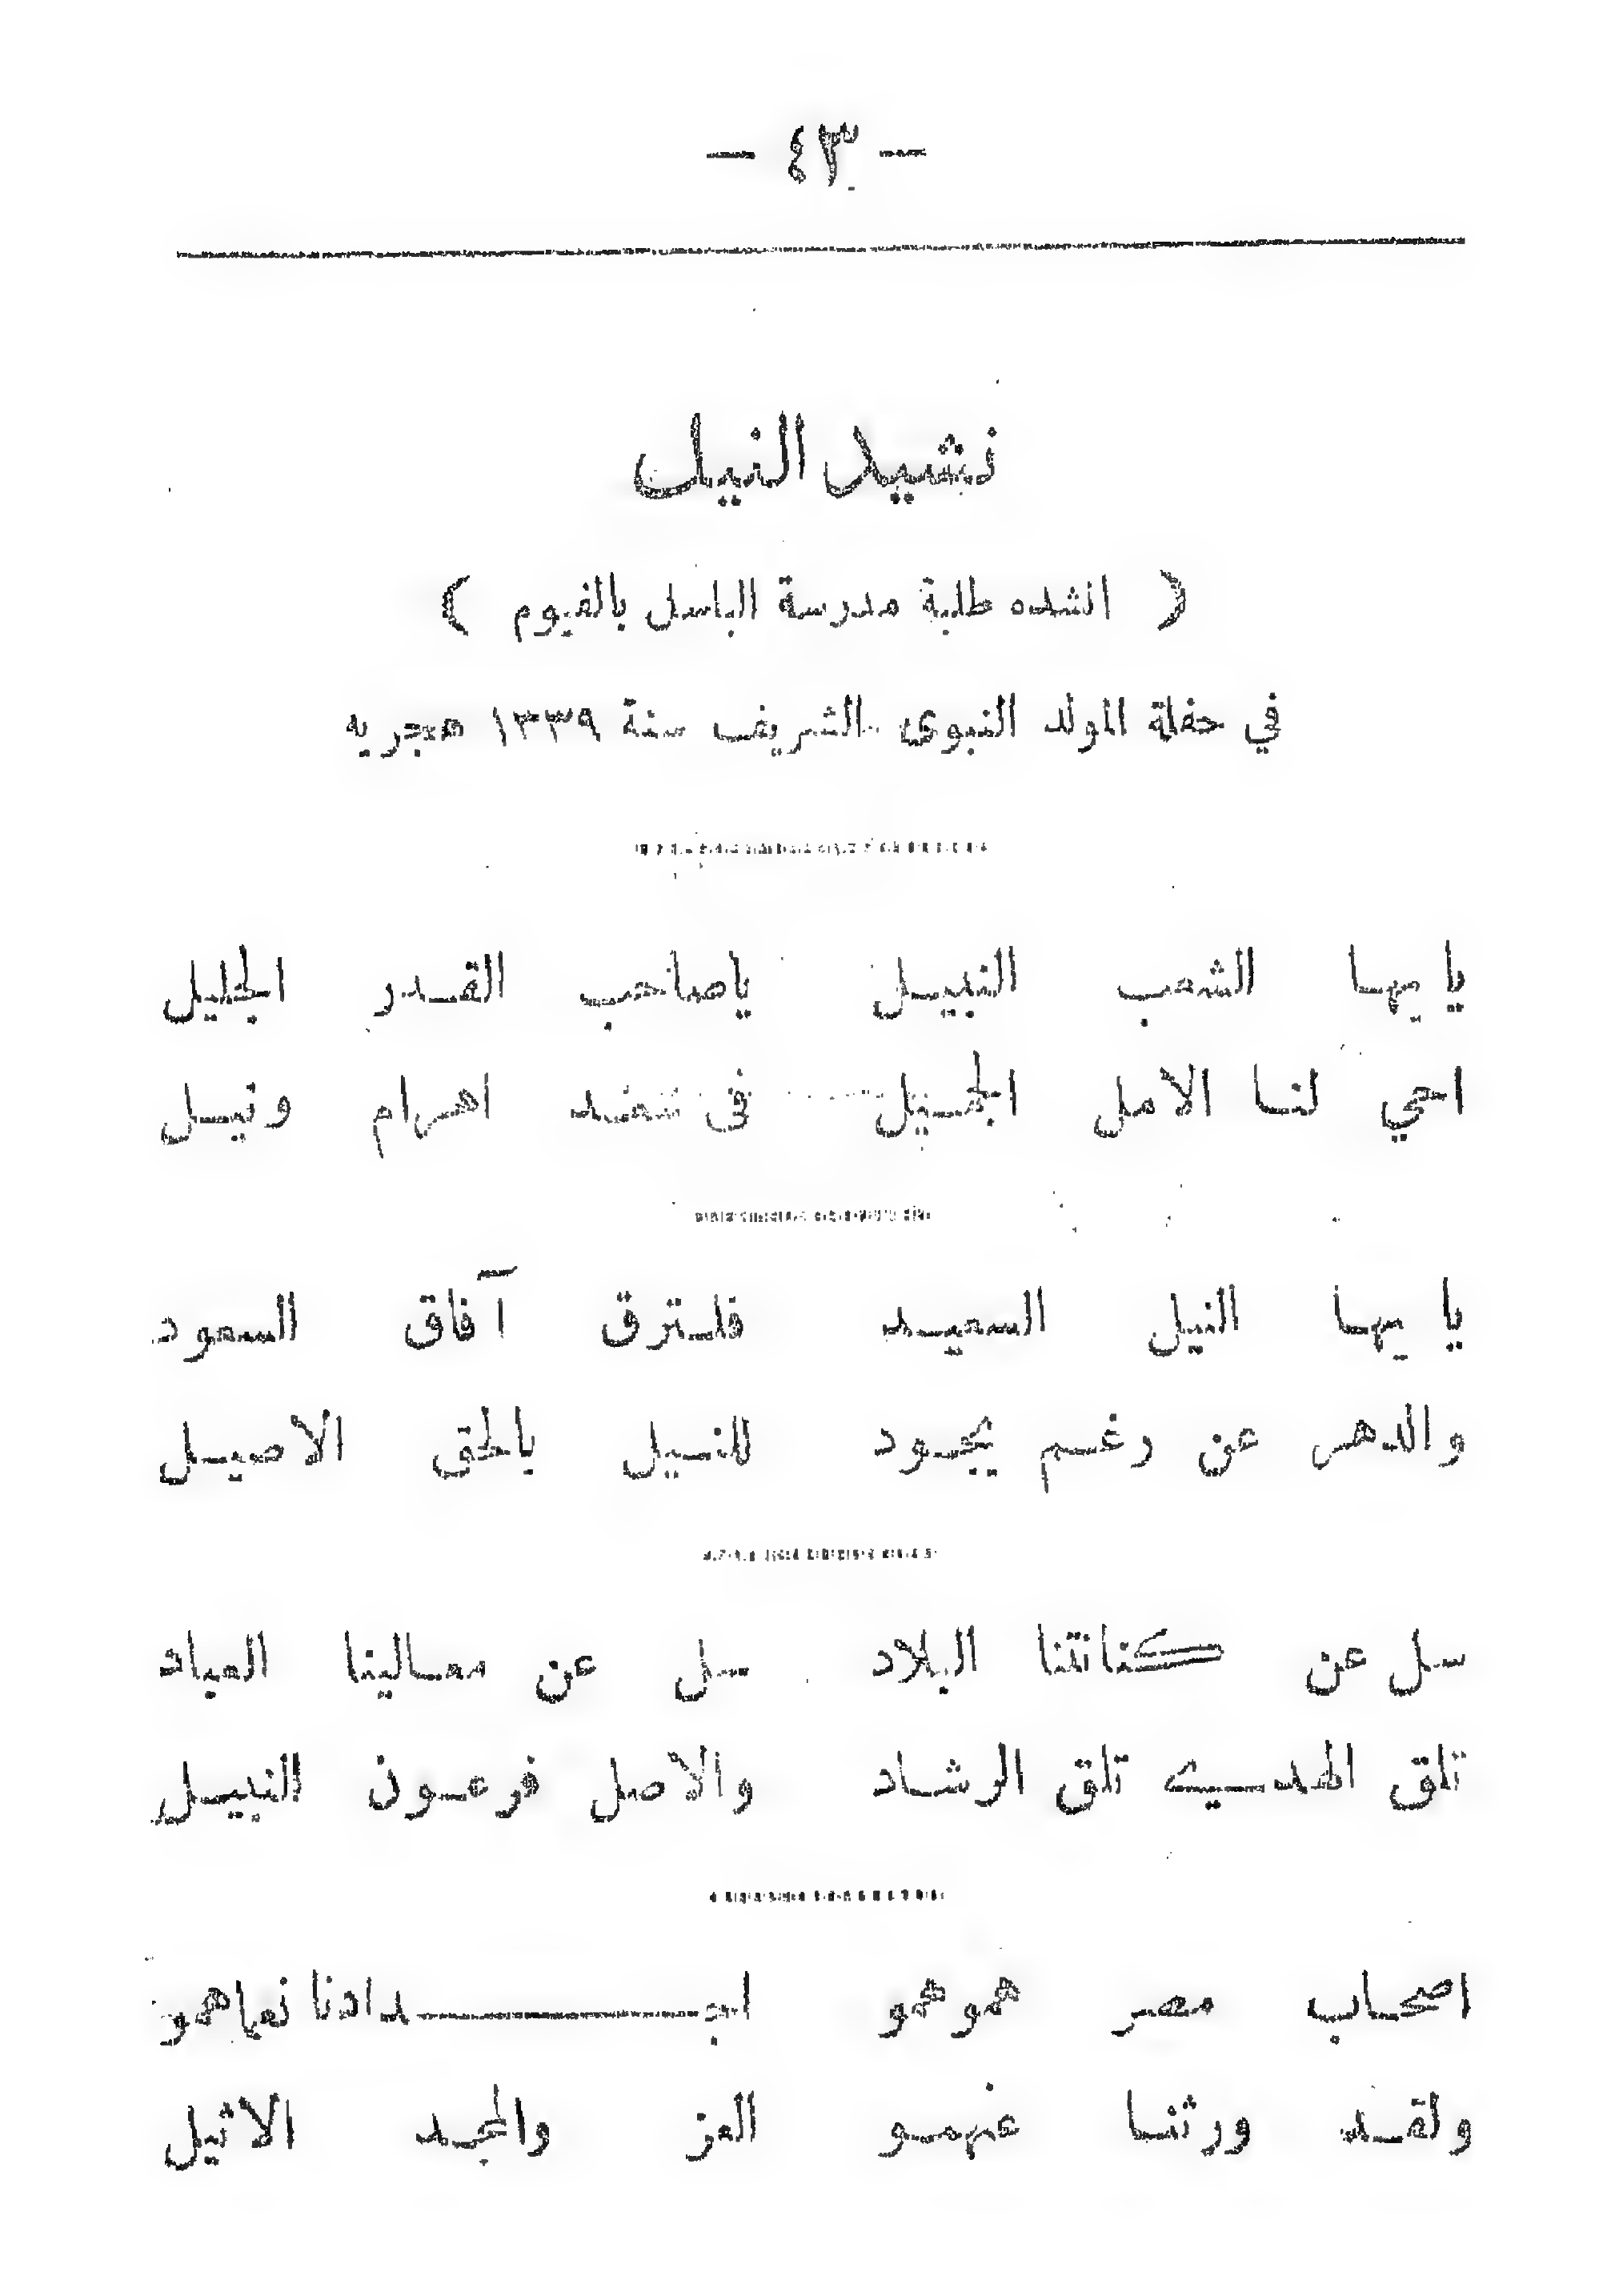 — ٤٣ —
نشيد النيل
( انشده طلبة مدرسة الباسل بالفيوم )
في حفلة المولد النبوى الشريف سنة ١٣٣٩ هجريه
يا يها الشعب النبيل ياصاحب القدر الجليل
احي لنا الامل الجميل فى اهرام ونيل
يا يها النيل السعيد فلترق آفاق السعود
والدهر عن رغم يجود للنيل بالحق الاصيل
سل عن كنانتنا البلاد سل عن معالينا العباد
تلق الهدى تلق الرشاد والاصل فرعون النبيل
اصحاب مصر همو همو اجدادنا نعماهمو
ولقد ورثنا عنهمو العز والمجد الاثيل